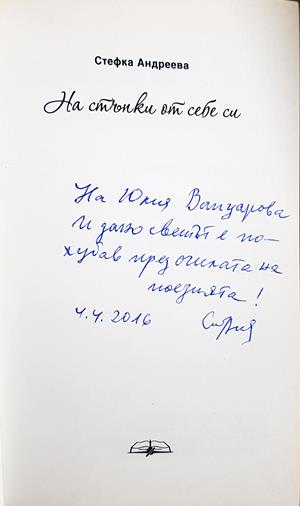 Стефка Андреева
На стъпки от себе си
На Юлия Вапцарова
И дано светът е по-
хубав през очилата на
поезията!
4.4.2016